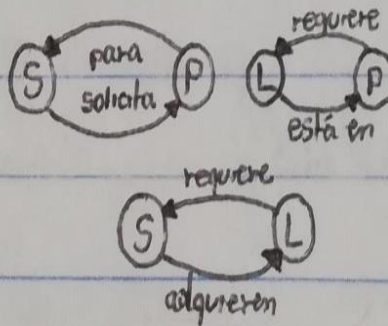 para
S
P
solicita
requiere
L
P
está en
requiere
S
L
adquieren